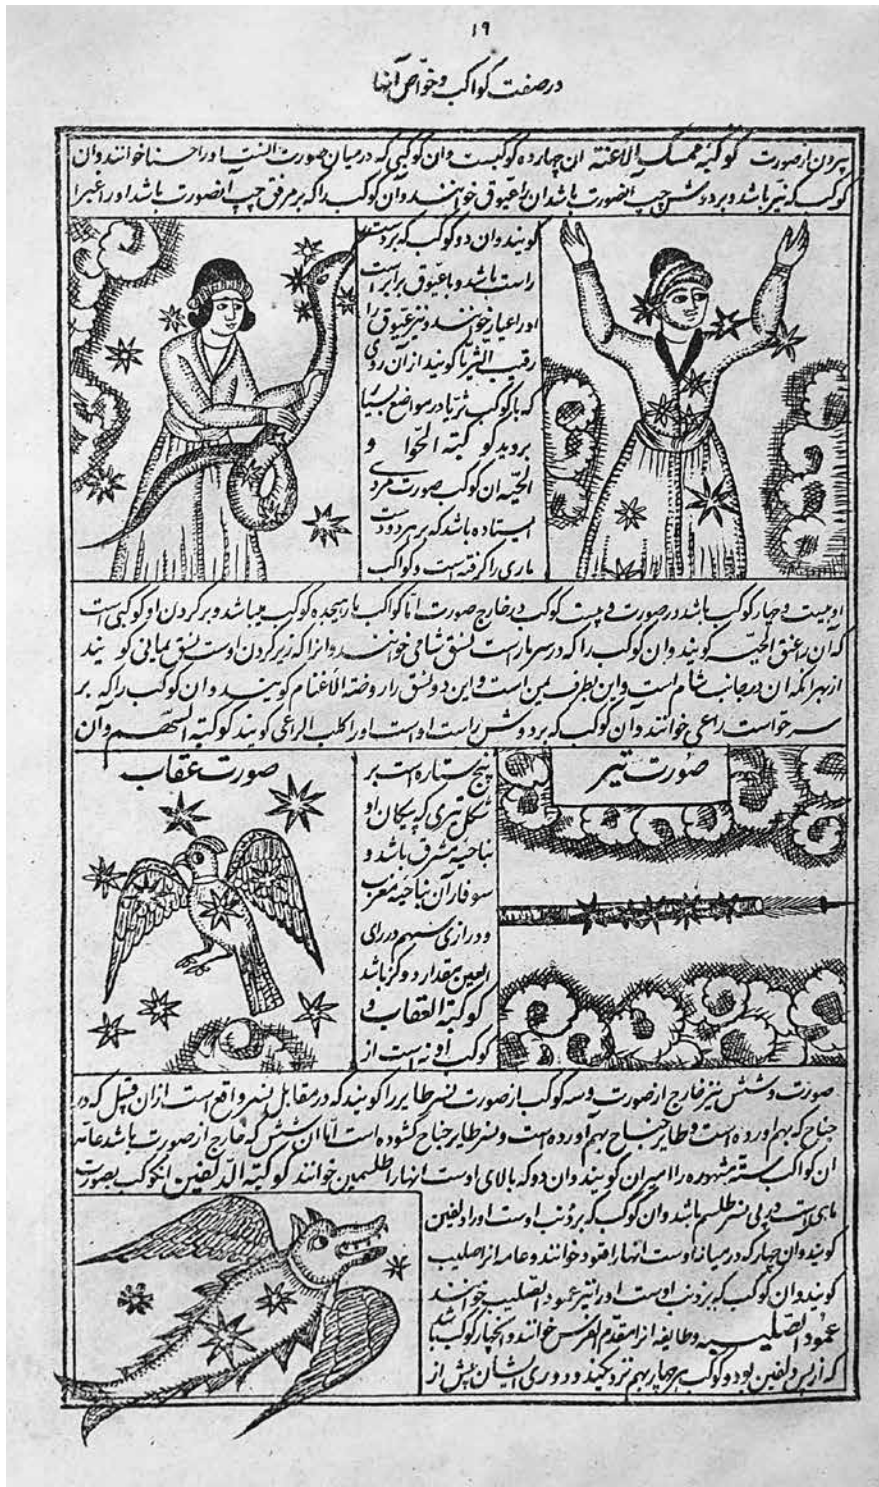 ۱۹
در صفت کواکب و خواص آنها
بیرون از صورت کوکبة ممسک الاعنة ان چهارده کوکبست وان کوکبی که در میان صورت است اورا خوانند وان
کوکب که نیر باشد و بر دوش چپ آنصورت باشد ان را عیوق خوانند وآن کوکب را که بر مرفق چپ آنصورت باشد اورا عنز
گویند وان دو کوکب که بر دست
راست باشد و با عیوق برابر است
اورا خوانند و نیز عیوق را
رقیب الثریا گویند از آن روی
که با کوکب ثریا در مواضع بسیار
بر دید کوکبته الحوا و
الحیه ان کوکب صورت مردی
ایستاده باشد که بر هر دو دست
ماری را گرفته است و کواکب
او بیست و چهار کوکب باشد در صورت و کوکب در خارج صورت اما کواکب مار هیجده کوکب میباشد و بر گردن او کوکبی است
که آن را عنق الحیه گویند وان کوکب را که در سر مار است نسق شامی خوانند وانرا که زیر گردن اوست نسق یمانی گویند
از بهر انکه ان در جانب شام است و این بطرف یمن است و این دو نسق را روضة الاغنام گویند وان کوکب را که بر
سر حواست راعی خوانند وآن کوکب که بر دوش راست اوست اورا کلب الراعی گویند کوکبته السهم وآن
صورت تیر
پنج ستاره است بر
شکل تیری که پیکان او
بناحیه مشرق باشد و
سوفار آن بناحیه مغرب
و درازی سهم در رای
العین بمقدار دو گز باشد
کوکبته العقاب و
کوکب او نه است از
صورت عقاب
صورت و شش نیز خارج از صورت و سه کوکب از صورت نسر طایر را گویند که در مقابل نسر واقع است از ان قبل که در
جناح که بهم اورده است و طایر جناح بهم آورده است و نسر طایر جناح گشوده است اما ان شش که خارج از صورت باشد عامه
ان کواکب سته مشهوره را گویند وان دو که بالای اوست انهارا ظلیمین خوانند کوکبته الدلفین انکوکب بصورت
ماهی است در پی نسر باشد وان کوکب که بر ذنب اوست اورا دلفین
گویند وان چهار که در میانه اوست انهارا قعود خوانند و عامه انرا صلیب
گویند وان کوکب که بر ذنب اوست اورا نیز عمود الصلیب خوانند
عمود الصلیب و طایفه انرا مقدم الفرس خوانند و انچهار کوکب باشد
که از پس دلفین بود و کوکب هر چهار بهم نزدیکند و دوری ایشان بیش از